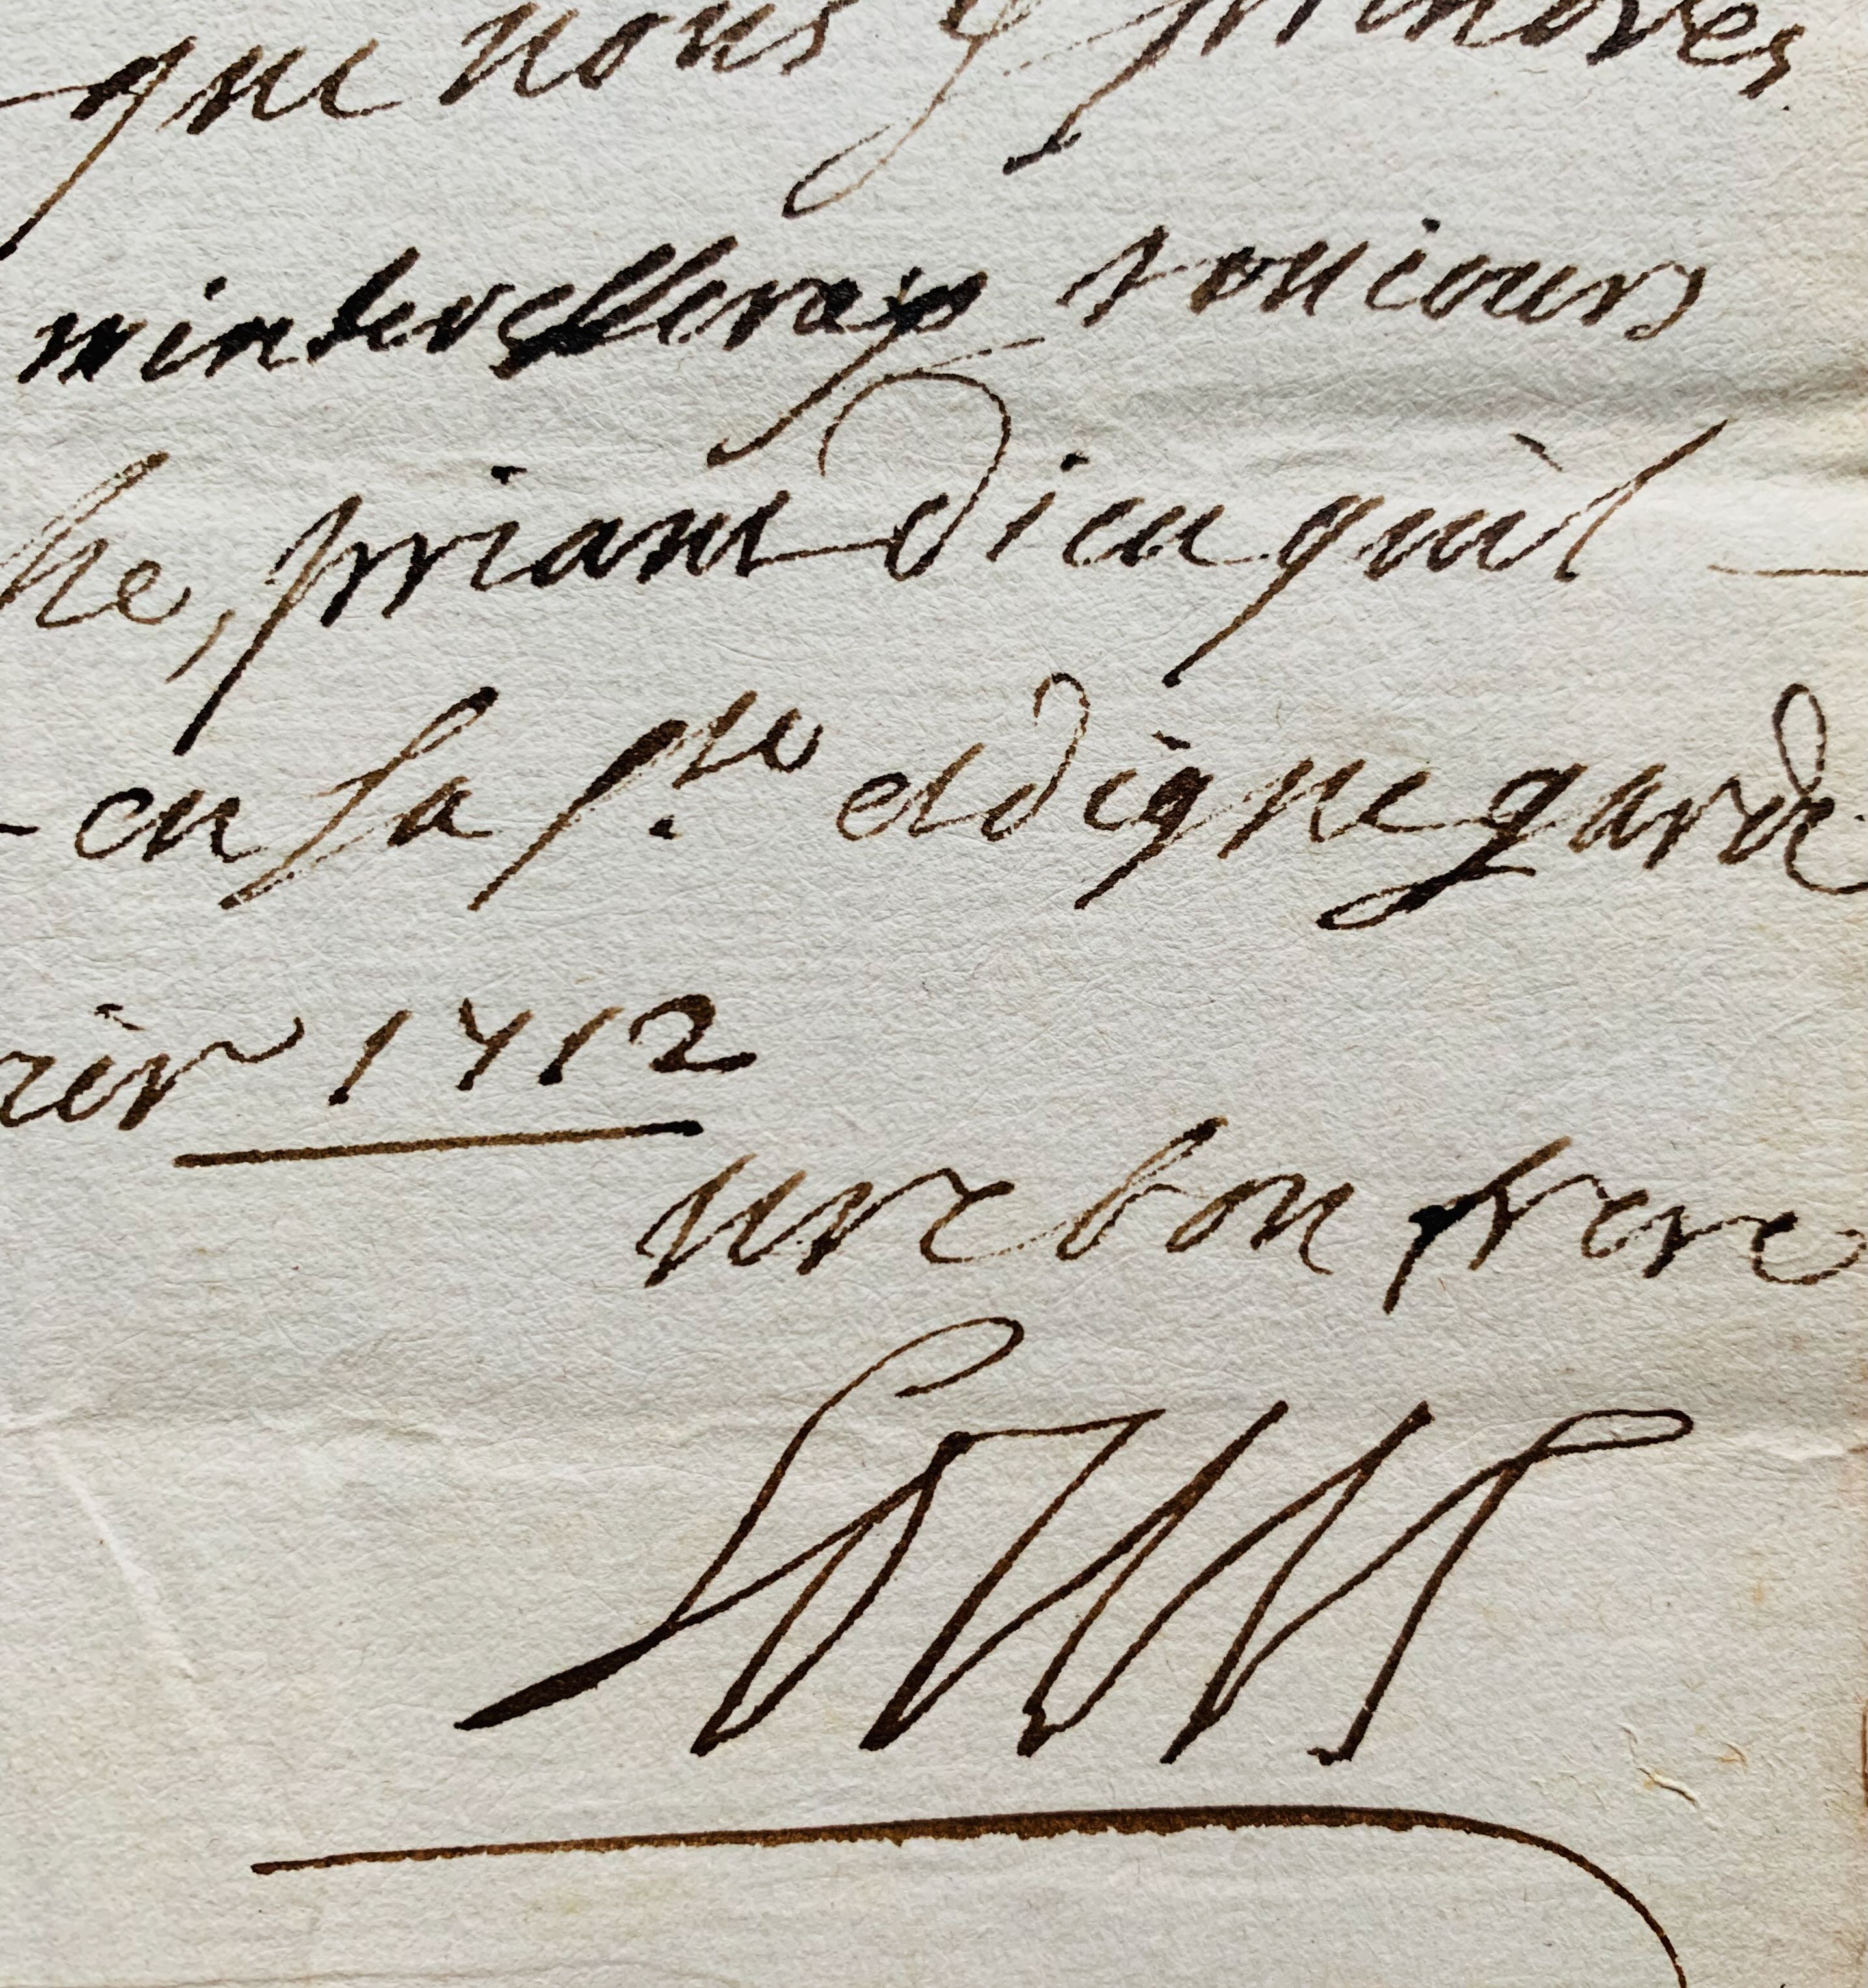 que vous y prendrés
minteresseray toujours
he, priant Dieu quil
en sa s.te et digne garde
rier 1712
vre bon frere
Louis